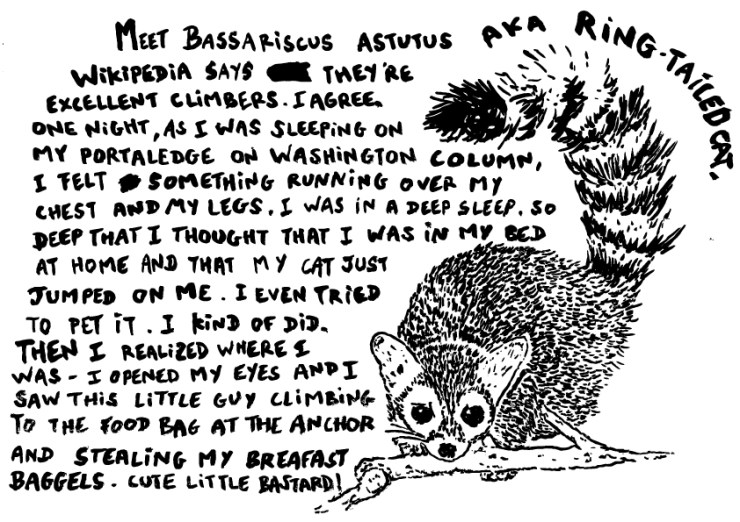 MEET BASSARISCUS ASTUTUS AKA RING-TAILED CAT.
WIKIPEDIA SAYS THEY'RE
EXCELLENT CLIMBERS. I AGREE.
ONE NIGHT, AS I WAS SLEEPING ON
MY PORTALEDGE ON WASHINGTON COLUMN,
I FELT SOMETHING RUNNING OVER MY
CHEST AND MY LEGS. I WAS IN A DEEP SLEEP. SO
DEEP THAT I THOUGHT THAT I WAS IN MY BED
AT HOME AND THAT MY CAT JUST
JUMPED ON ME. I EVEN TRIED
TO PET IT. I KIND OF DID.
THEN I REALIZED WHERE I
WAS - I OPENED MY EYES AND I
SAW THIS LITTLE GUY CLIMBING
TO THE FOOD BAG AT THE ANCHOR
AND STEALING MY BREAFAST
BAGGELS. CUTE LITTLE BASTARD!